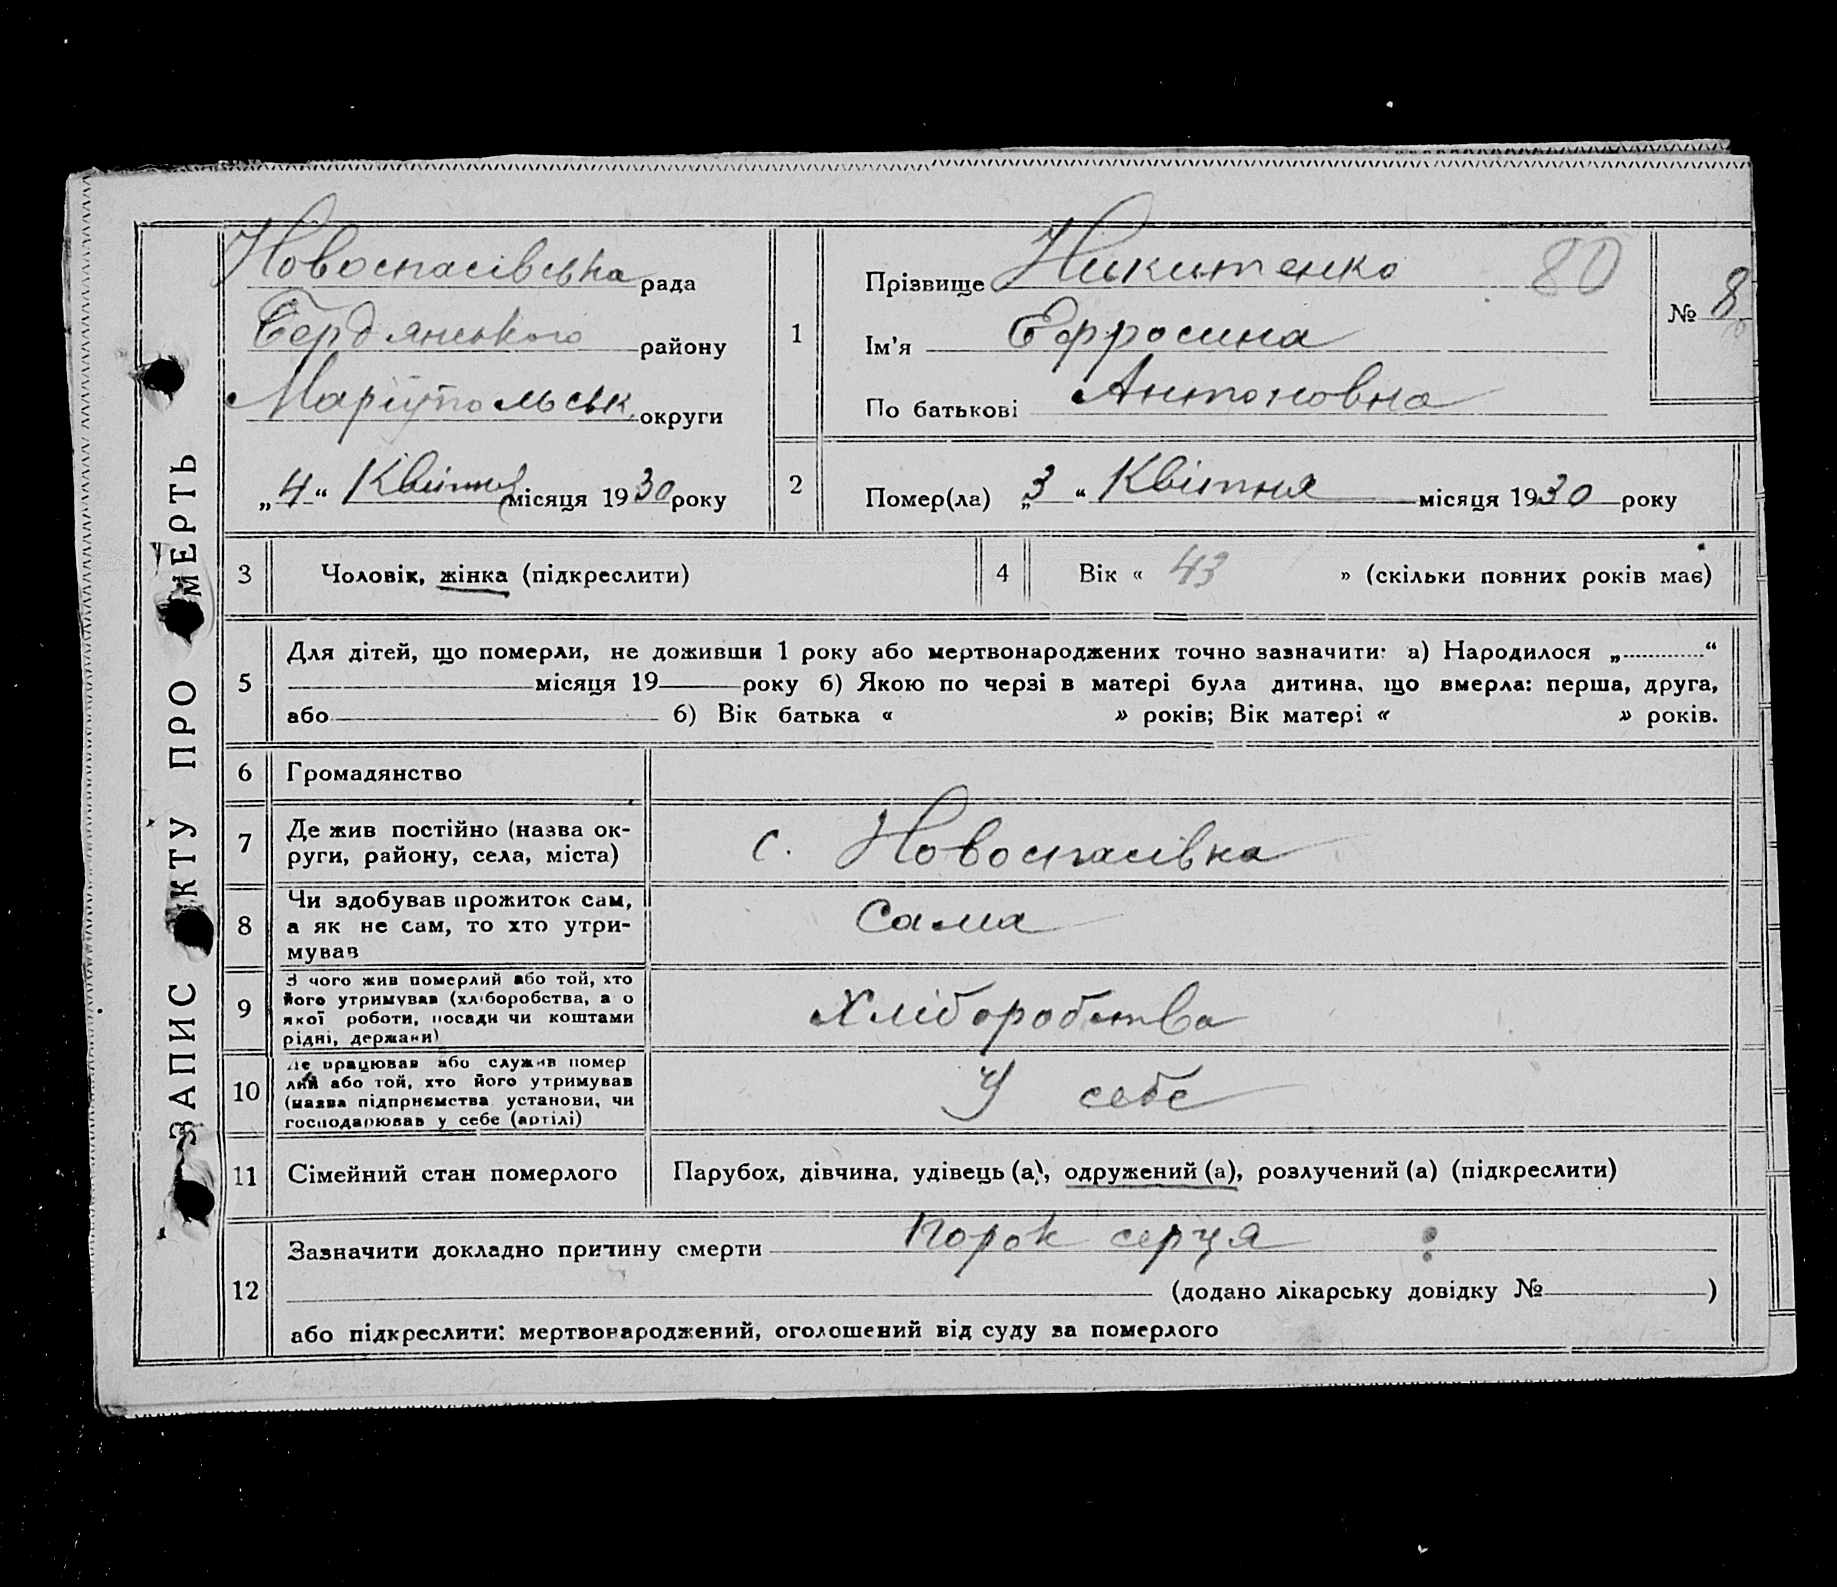 ЗАПИС АКТУ ПРО СМЕРТЬ
Новоспасівська рада
Бердянського району
Маріупольськ. округи
„4“ Квітня місяця 1930 року
1
Прізвище Никитенко 80
Ім'я Ефросина
По батькові Антоновна
№ 8
2
Помер(ла) „3“ Квітня місяця 1930 року
3 Чоловік, жінка (підкреслити)
4 Вік « 43 » (скільки повних років має)
5
Для дітей, що померли, не доживши 1 року або мертвонароджених точно зазначити: а) Народилося „ “
місяця 19 року б) Якою по черзі в матері була дитина, що вмерла: перша, друга,
або б) Вік батька « » років; Вік матері « » років.
6 Громадянство
7
Де жив постійно (назва ок-
руги, району, села, міста)
с. Новоспасівка
8
Чи здобував прожиток сам,
а як не сам, то хто утри-
мував
Сама
9
З чого жив померлий або той, хто
його утримував (хліборобства, а о
якої роботи, посади чи коштами
рідні, держави)
Хліборобства
10
Де працював або служив помер
лий або той, хто його утримував
(назва підприємства установи, чи
господарював у себе (артілі)
У себе
11 Сімейний стан померлого
Парубок, дівчина, удівець (а), одружений (а), розлучений (а) (підкреслити)
12
Зазначити докладно причину смерти порок серця
(додано лікарську довідку № )
або підкреслити: мертвонароджений, оголошений від суду за померлого